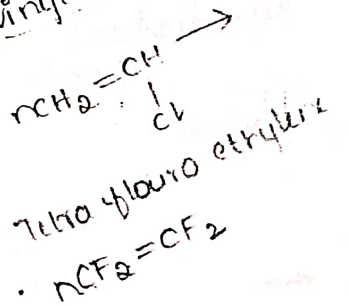 nCH2=CH →
Cl
Tetra flouro etrylene
nCF2=CF2